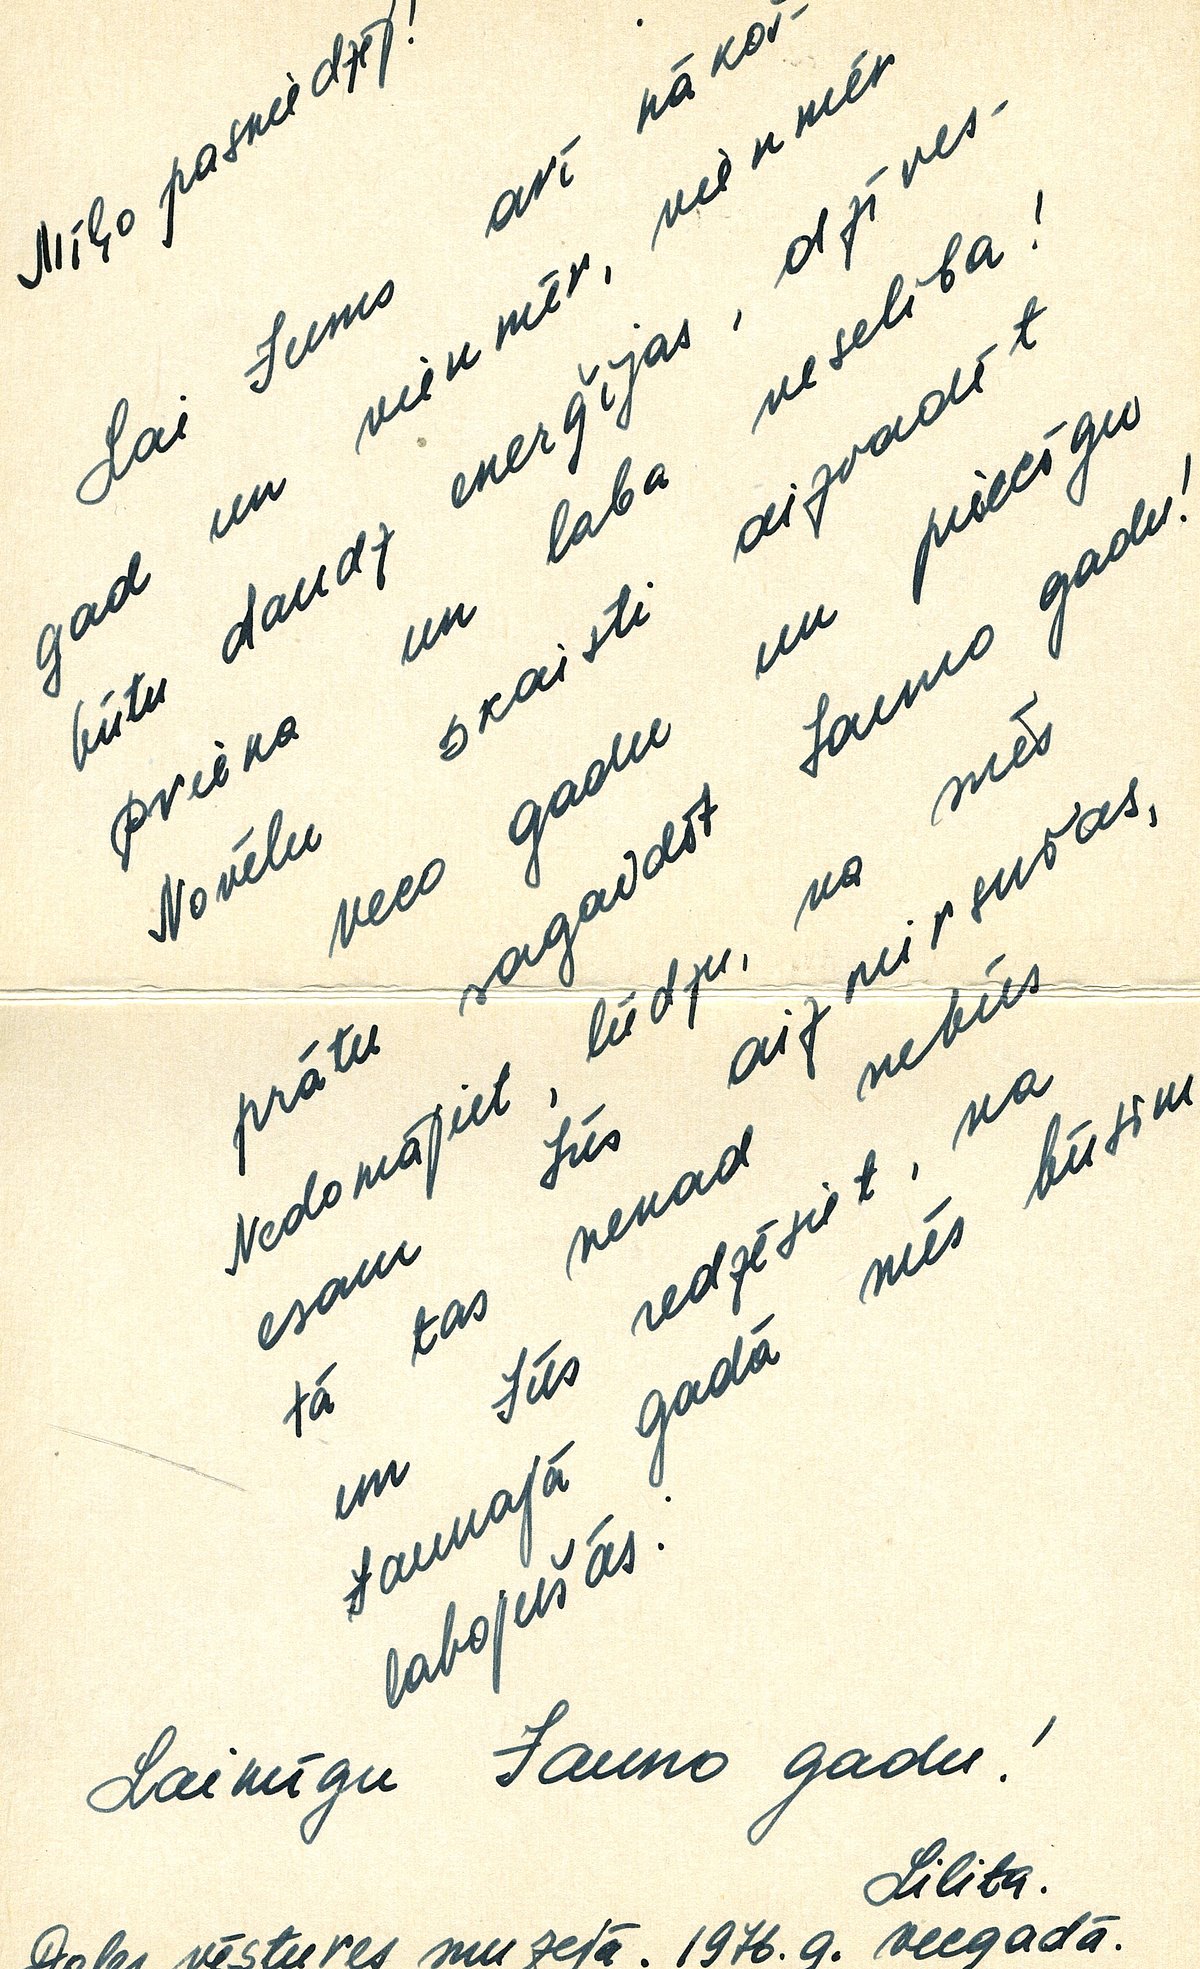 Mīļo pasniedzēj!
Lai Jums arī nākoš-
gad un vienmēr, vienmēr
būtu daudz enerģijas, dzīves-
prieka un laba veselība!
Novēlu skaisti aizvadīt
veco gadu un priecīgu
prātu sagaidīt Jauno gadu!
Nedomājiet, lūdzu, ka mēs
esam Jūs aizmirsušas,
tā tas nekad nebūs
un Jūs redzēsiet, ka
Jaunajā gadā mēs būsim
labojušās.
Laimīgu Jauno gadu!
Lilita.
Doles vēstures muzejā. 1976. g. vecgadā.